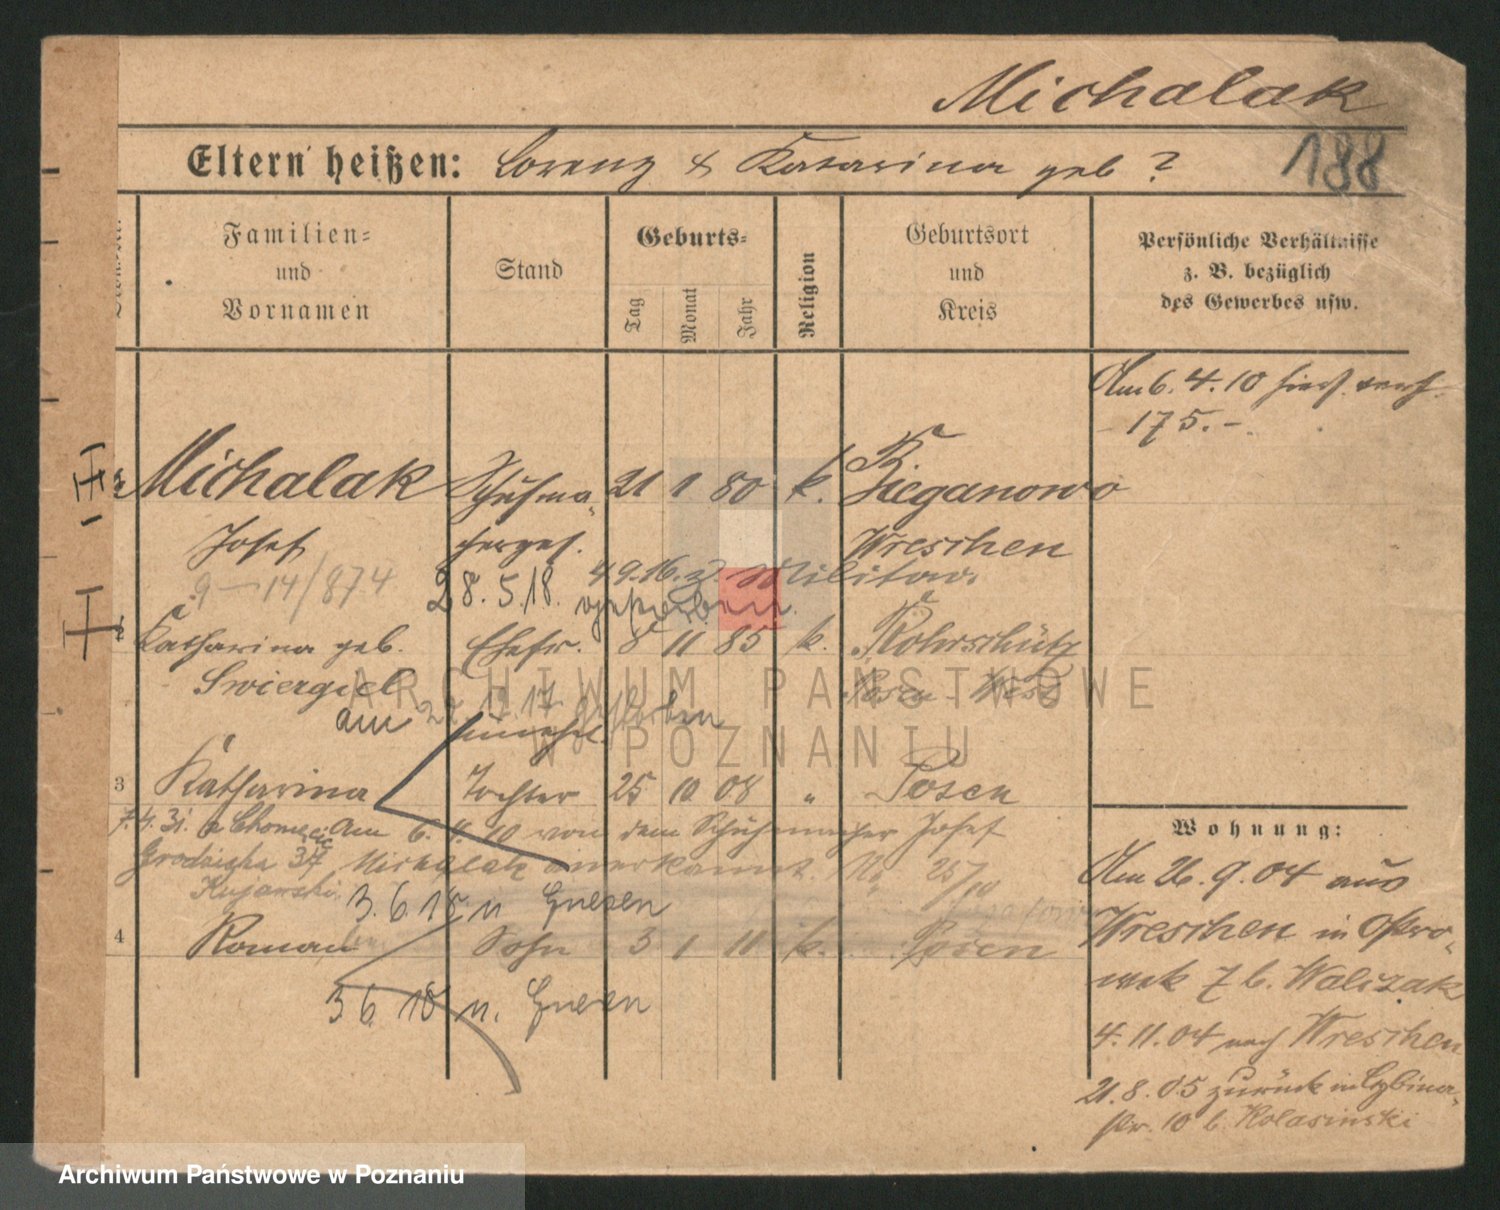 Michalak
188
Eltern heißen: Lorenz & Katarina geb ?
Familien= und Vornamen
Stand
Geburts=
Tag
Monat
Jahr
Religion
Geburtsort und Kreis
Persönliche Verhältnisse
z. B. bezüglich
des Gewerbes usw.
Am 6. 4. 10
175.-
Michalak Schuhma- 21 1 80 k.
Josef cherges. Wreschen
9-14/874 28.5.18. 4.9.16. z. Militär
2 Katharina geb. Ehefr. 8 11 85 k. Rohrschütz
Swiergiel Posen West
am 22 17 gestorben
unehel.
3 Katharina Tochter 25 10 08 " Posen
7.4.31. Am 6. 4. 10 von dem Schuhmacher Josef
Grodziska 37 Michalak anerkannt. No 25/10
Kujawski
3.6.18 n Gnesen
4 Roman Sohn 3 1 11 k. Posen
3 6 18 n. Gnesen
Wohnung:
Am 26. 9. 04 aus
Wreschen in Ostro-
wek 7 b. Walczak
4. 11. 04 nach Wreschen
21. 8. 05 zurück in Cybina-
str. 10 b. Kolasinski
ARCHIWUM PAŃSTWOWE
W POZNANIU
Archiwum Państwowe w Poznaniu